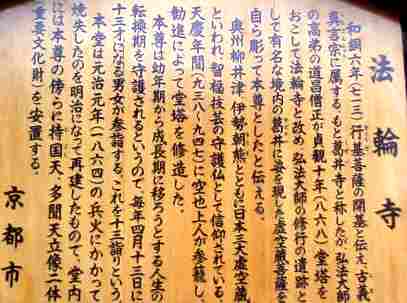 法輪寺
和銅六年(七一三)行基菩薩の開基と伝え古義
真言宗に属する。もと葛井寺と称したが、弘法大師
の高弟の道昌僧正が貞観十年(八六八)堂塔を
おこして法輪寺と改め、弘法大師の修行の遺跡と
して有名な境内の葛井に姿を現した虚空蔵菩薩を
自ら彫って本尊としたと伝える。
奥州柳井津、伊勢朝熊とともに日本三大虚空蔵
といわれ、智福技芸の守護仏として信仰されている。
天慶年間(九三八~九四七)に空也上人が参籠し、
勧進によって堂塔を修造した。
本尊は幼年期から成長期へ移ろうとする人生の
転換期を守護されるというので、毎年四月十三日に
十三才になる男女が参詣する。これを十三詣りという。
本堂は元治元年(一八六四)の兵火にかかって
焼失したのを明治になって再建したもので、堂内
には本尊の傍らに持国天、多聞天立像二体
(重要文化財)を安置する。
京都市